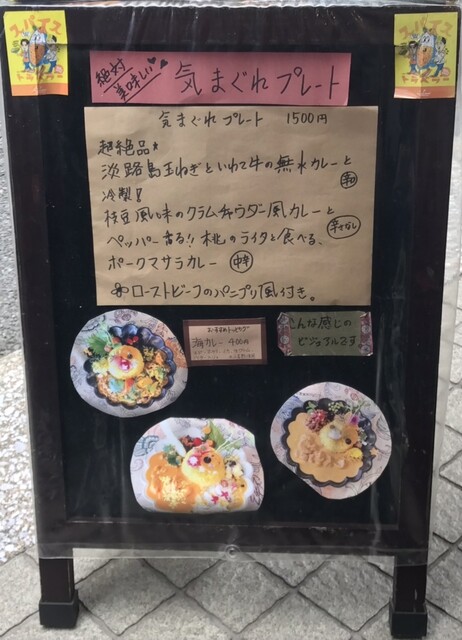 スパイス
トラベラー
絶対
美味しい♥
気まぐれプレート
スパイス
気まぐれプレート 1500円
超絶品★
淡路島玉ねぎといわて牛の無水カレーと 辛口
冷製!!
枝豆風味のクラムチャウダー風カレーと 辛さなし
ペッパー香る!! 桃のライタと食べる、
ポークマサラカレー 中辛
ローストビーフのパニプリ風付き。
カレー 400円
こんな感じの
ビジュアルです